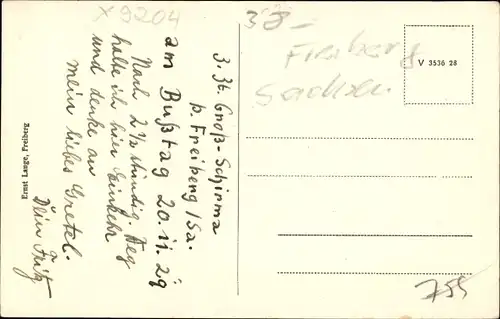 X9204
z. Zt. Groß-Schirma
b. Freiberg/Sa.
am Bußtag 20.11.29
Nach 2½ stündig. Weg
halte ich hier Einkehr
und denke an
mein liebes Gretel.
Dein Fritz
Ernst Lange, Freiberg
38-
Freiberg
Sachsen.
V 3536 28
755